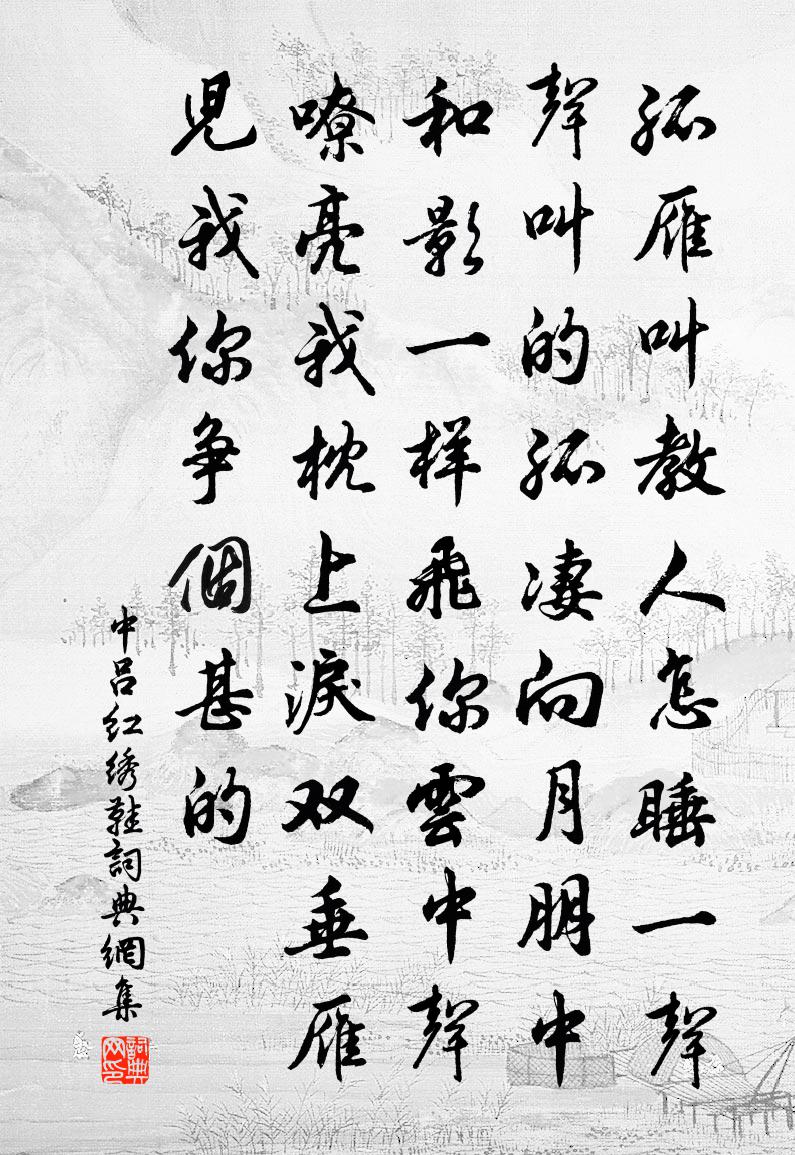 孤雁叫教人怎睡一聲
聲叫的孤凄向月明中
和影一样飛你雲中聲
嘹亮我枕上淚双垂雁
児我你争個甚的
中吕红绣鞋詞典網集
詞典网印